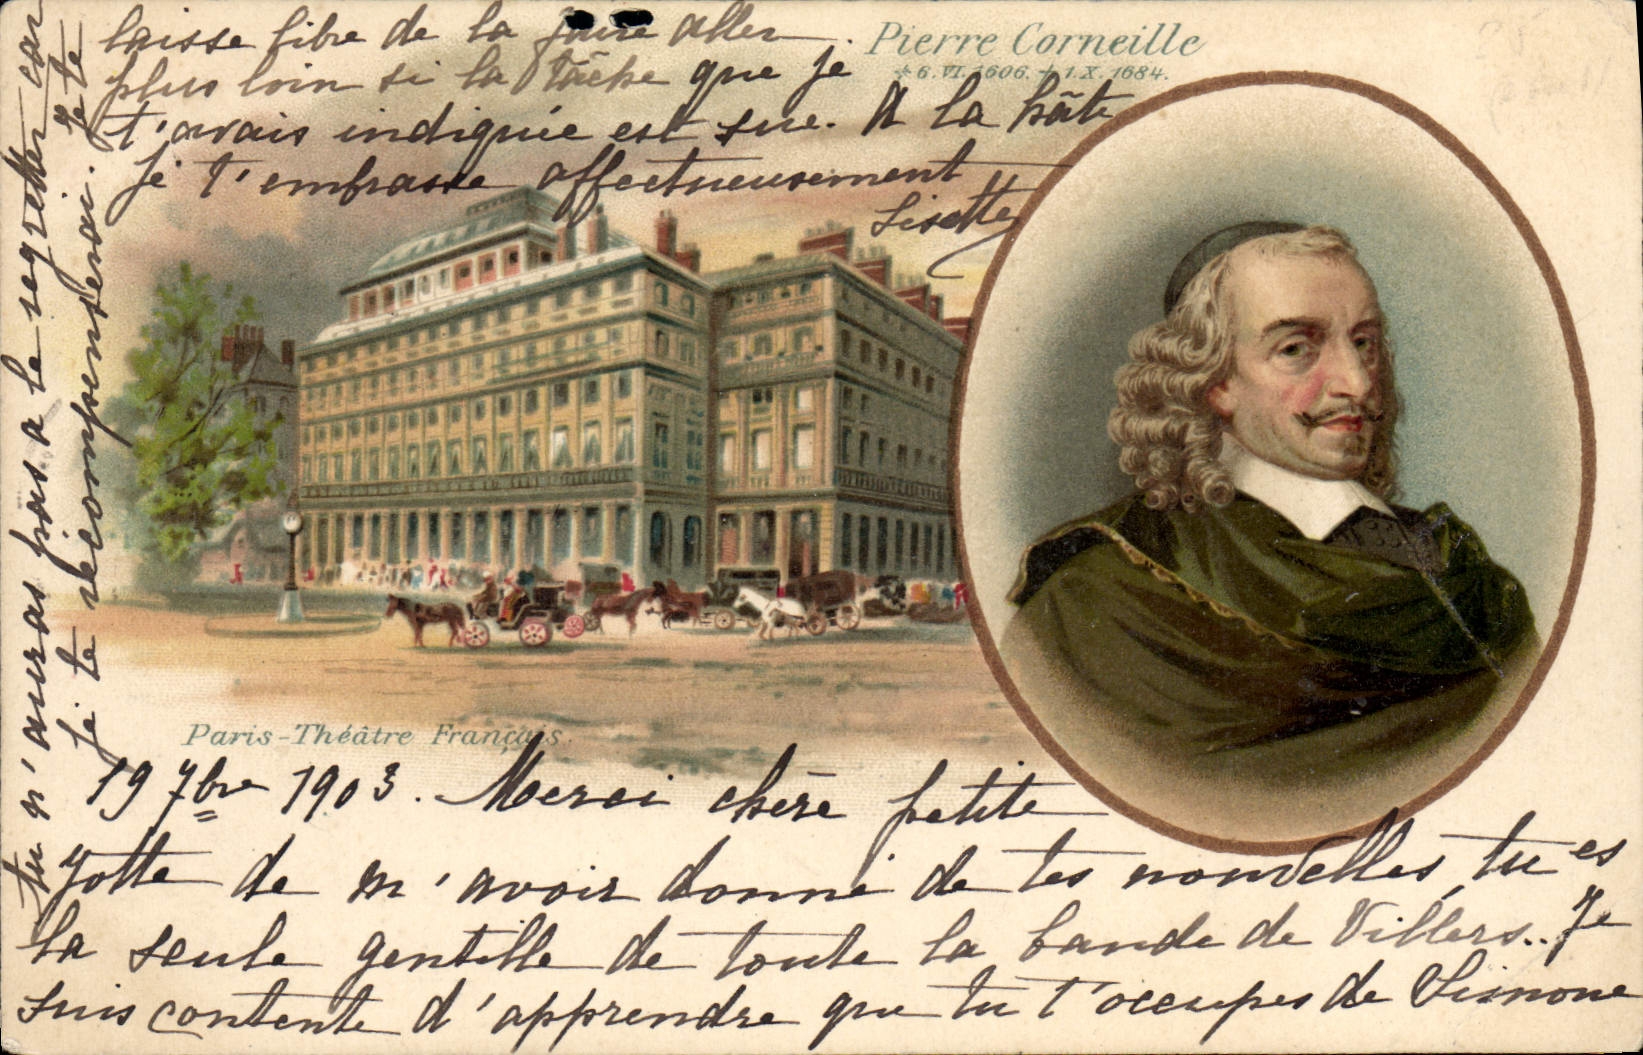 Pierre Corneille
* 6. VI. 1606. † 1. X. 1684.
Paris-Théâtre Français.
19 7bre 1903. Merci chère petite
Yotte de m'avoir donné de tes nouvelles tu es
la seule gentille de toute la bande de Villers.. Je
suis contente d'apprendre que tu t'occupes de Simone
tu n'auras pas a le regretter car
je te récompenserai. Je te
laisse libre de la faire aller
plus loin si la tâche que je
t'avais indiquée est sue. A la hâte
je t'embrasse affectueusement
Lisette